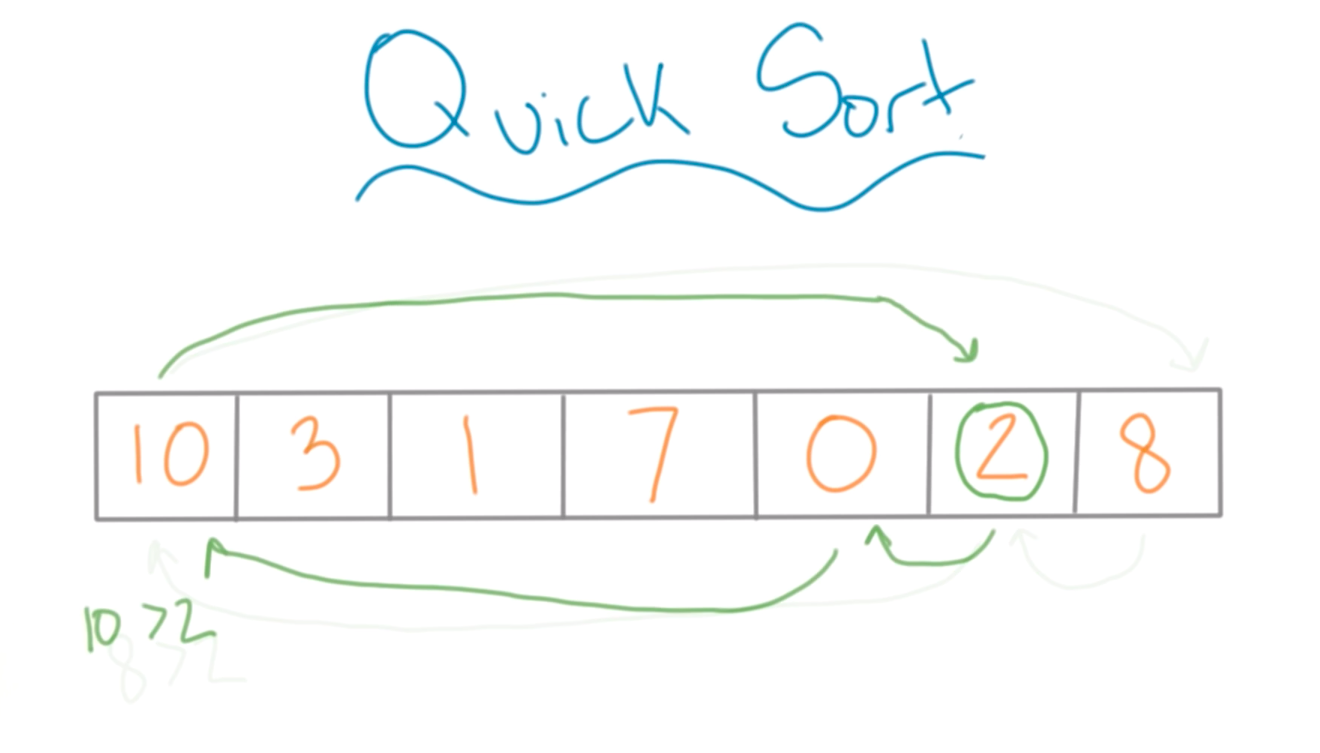 Quick Sort
10 3 1 7 0 2 8
10 >2
8 >2